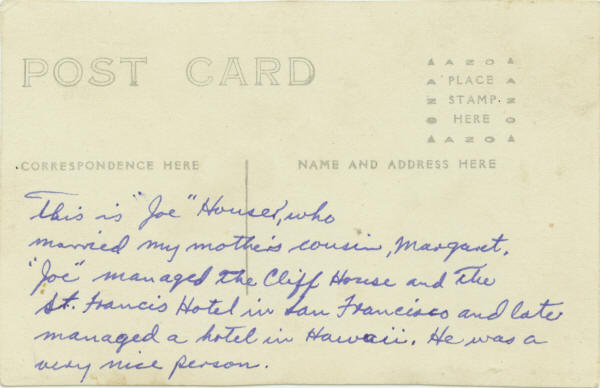 POST CARD
▲ A Z O ▲
▲ PLACE ▲
Z STAMP Z
● HERE O
▲ A Z O ▲
CORRESPONDENCE HERE
NAME AND ADDRESS HERE
This is "Joe" Houser, who
married my mother's cousin, Margaret.
"Joe" managed the Cliff House and the
St. Francis Hotel in San Francisco and late
managed a hotel in Hawaii. He was a
very nice person.